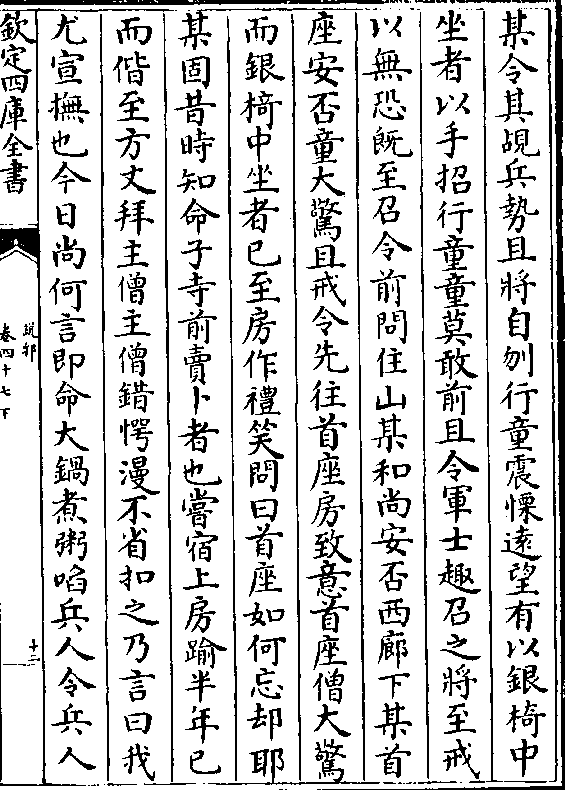 某令其覘兵勢且將自刎行童震慄遠望有以銀椅中
坐者以手招行童童莫敢前且令軍士趣召之將至戒
以無恐既至召令前問住山某和尚安否西廊下某首
座安否童大驚且戒令先往首座房致意首座僧大驚
而銀椅中坐者已至房作禮笑問曰首座如何忘却耶
某固昔時知命子寺前賣卜者也嘗宿上房踰半年已
而偕至方丈拜主僧主僧錯愕漫不省扣之乃言曰我
尤宣撫也今日尚何言即命大鍋煮粥啗兵人令兵人
欽定四庫全書
說郛
卷四十七下
十三